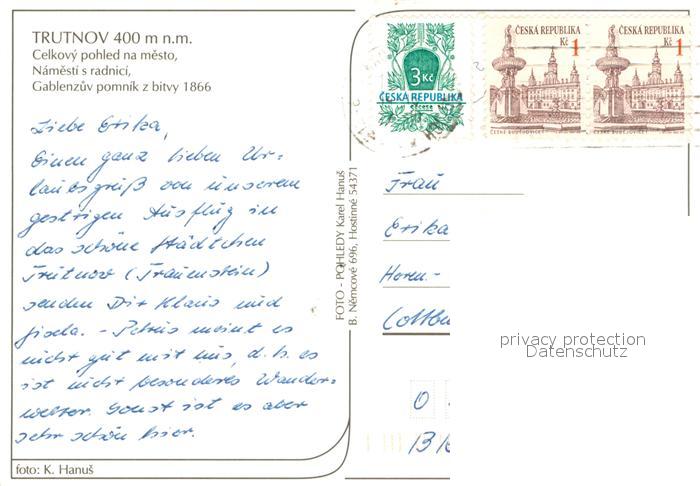 TRUTNOV 400 m n.m.
Celkový pohled na město,
Náměstí s radnicí,
Gablenzův pomník z bitvy 1866
Liebe Erika,
Einen ganz lieben Ur-
laubsgruß von unserem
gestrigen Ausflug in
das schöne Städtchen
Trutnov (Trautenstein)
senden Dir Klaus und
Gisela. - Petrus meint es
nicht gut mit uns, d.h. es
ist nicht besonderes Wander-
wetter. Sonst ist es aber
sehr schön hier.
foto: K. Hanuš
FOTO - POHLEDY Karel Hanuš
B. Němcové 696, Hostinné 54371
3 Kč
ČESKÁ REPUBLIKA
secese
ČESKÁ REPUBLIKA
Kč 1
ČESKÉ BUDĚJOVICE
ČESKÁ REPUBLIKA
Kč 1
ČESKÉ BUDĚJOVICE
Frau
Erika
Horn-
Cottbu
O
privacy protection
Datenschutz